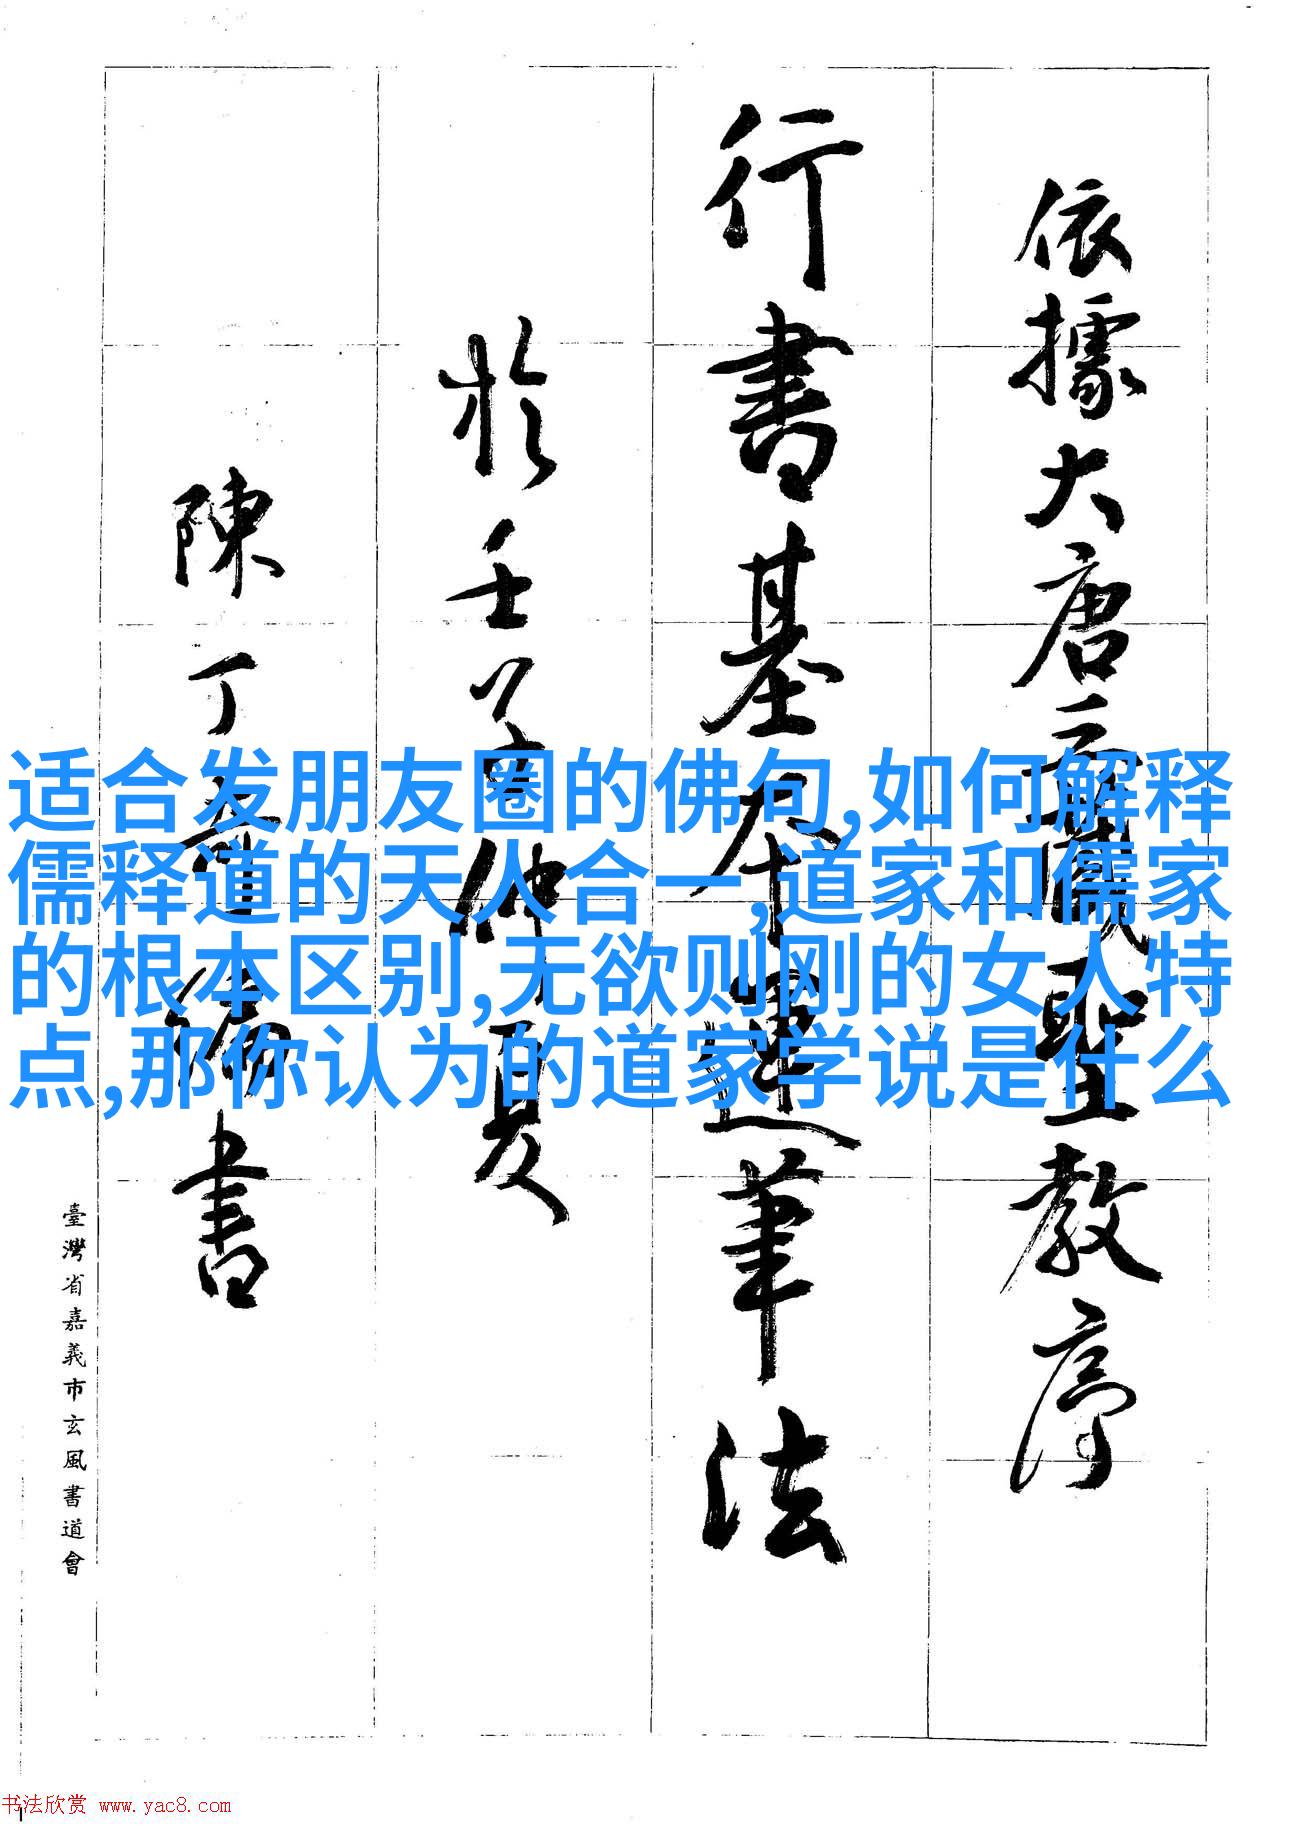 依據大唐三藏聖教序
行書基本運筆法
於壬子仲夏
陳丁奇編書
臺灣省嘉義市玄風書道會
适合发朋友圈的佛句,如何解释
儒释道的天人合一,道家和儒家
的根本区别,无欲则刚的女人特
点,那你认为的道家学说是什么
书法欣赏 www.yac8.com